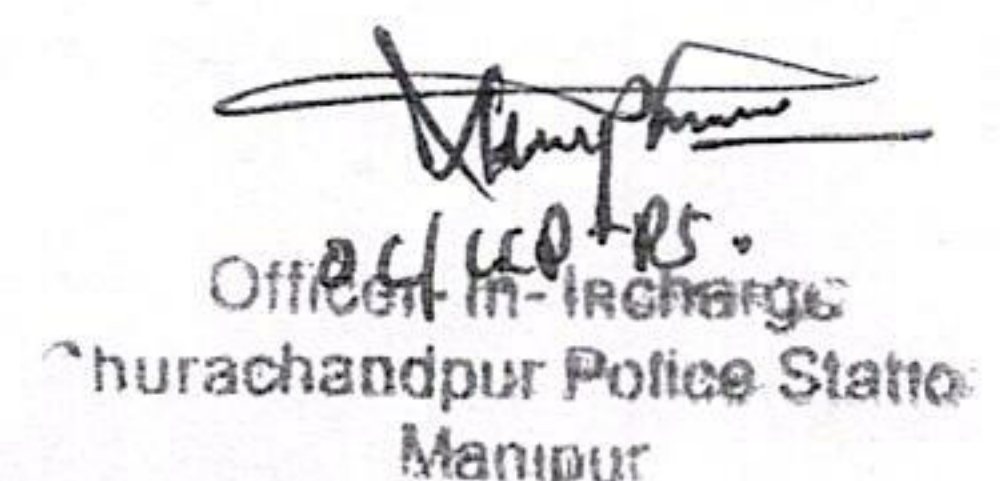 OC/CCP-PS.
Officer-In-Incharge
Churachandpur Police Statio
Manipur